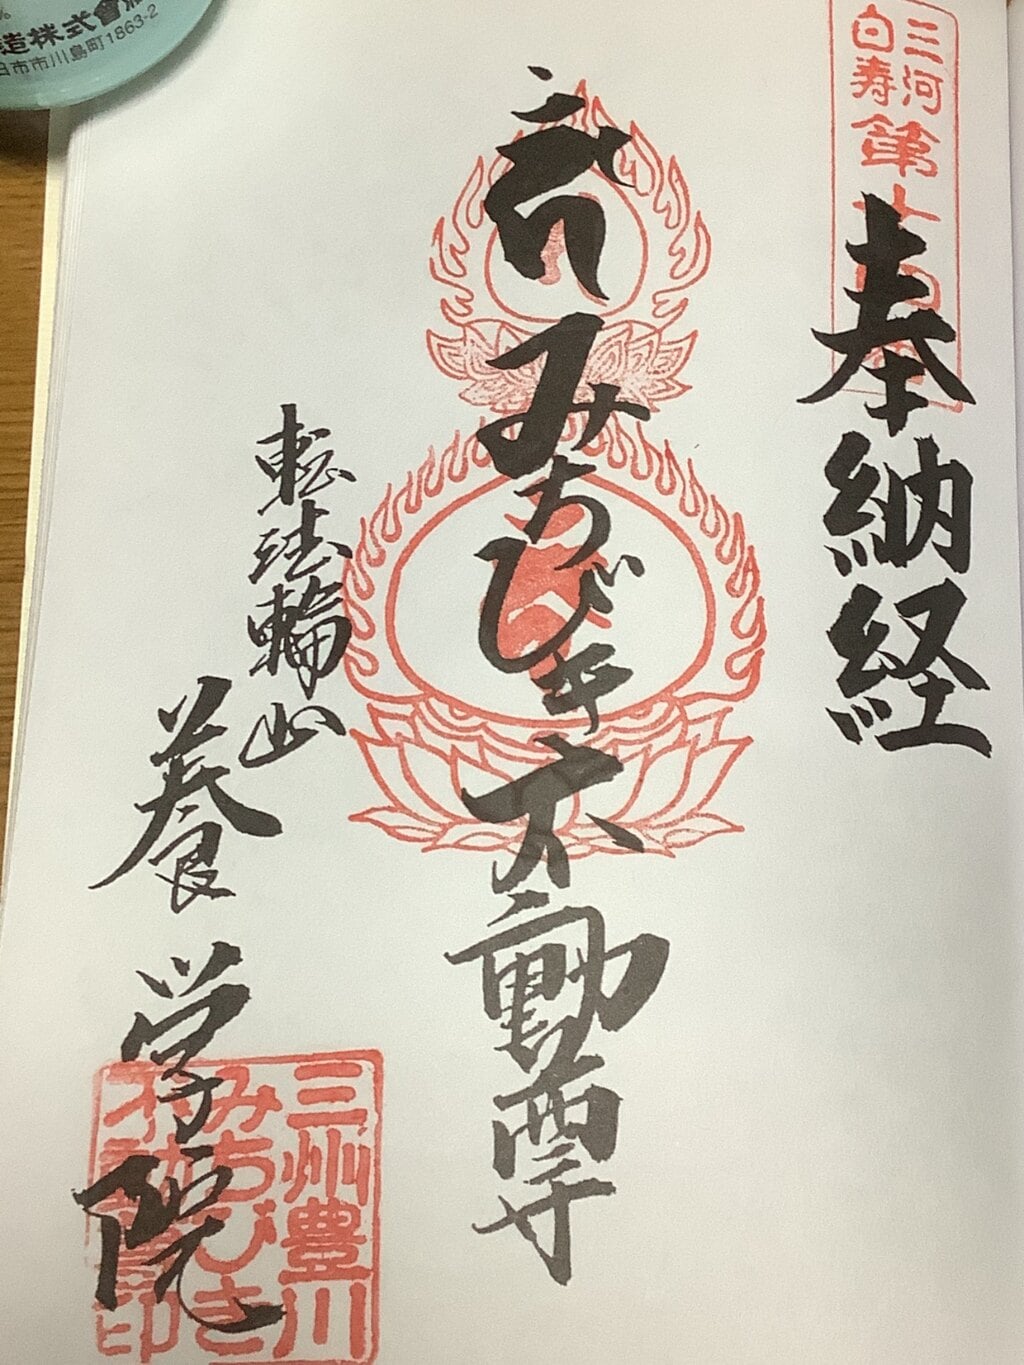 三河
白寿
第
奉納経
みちびき不動尊
転法輪山
養学院
三州豊川
みちびき
不動尊印
造株式會
日市市川島町1863-2